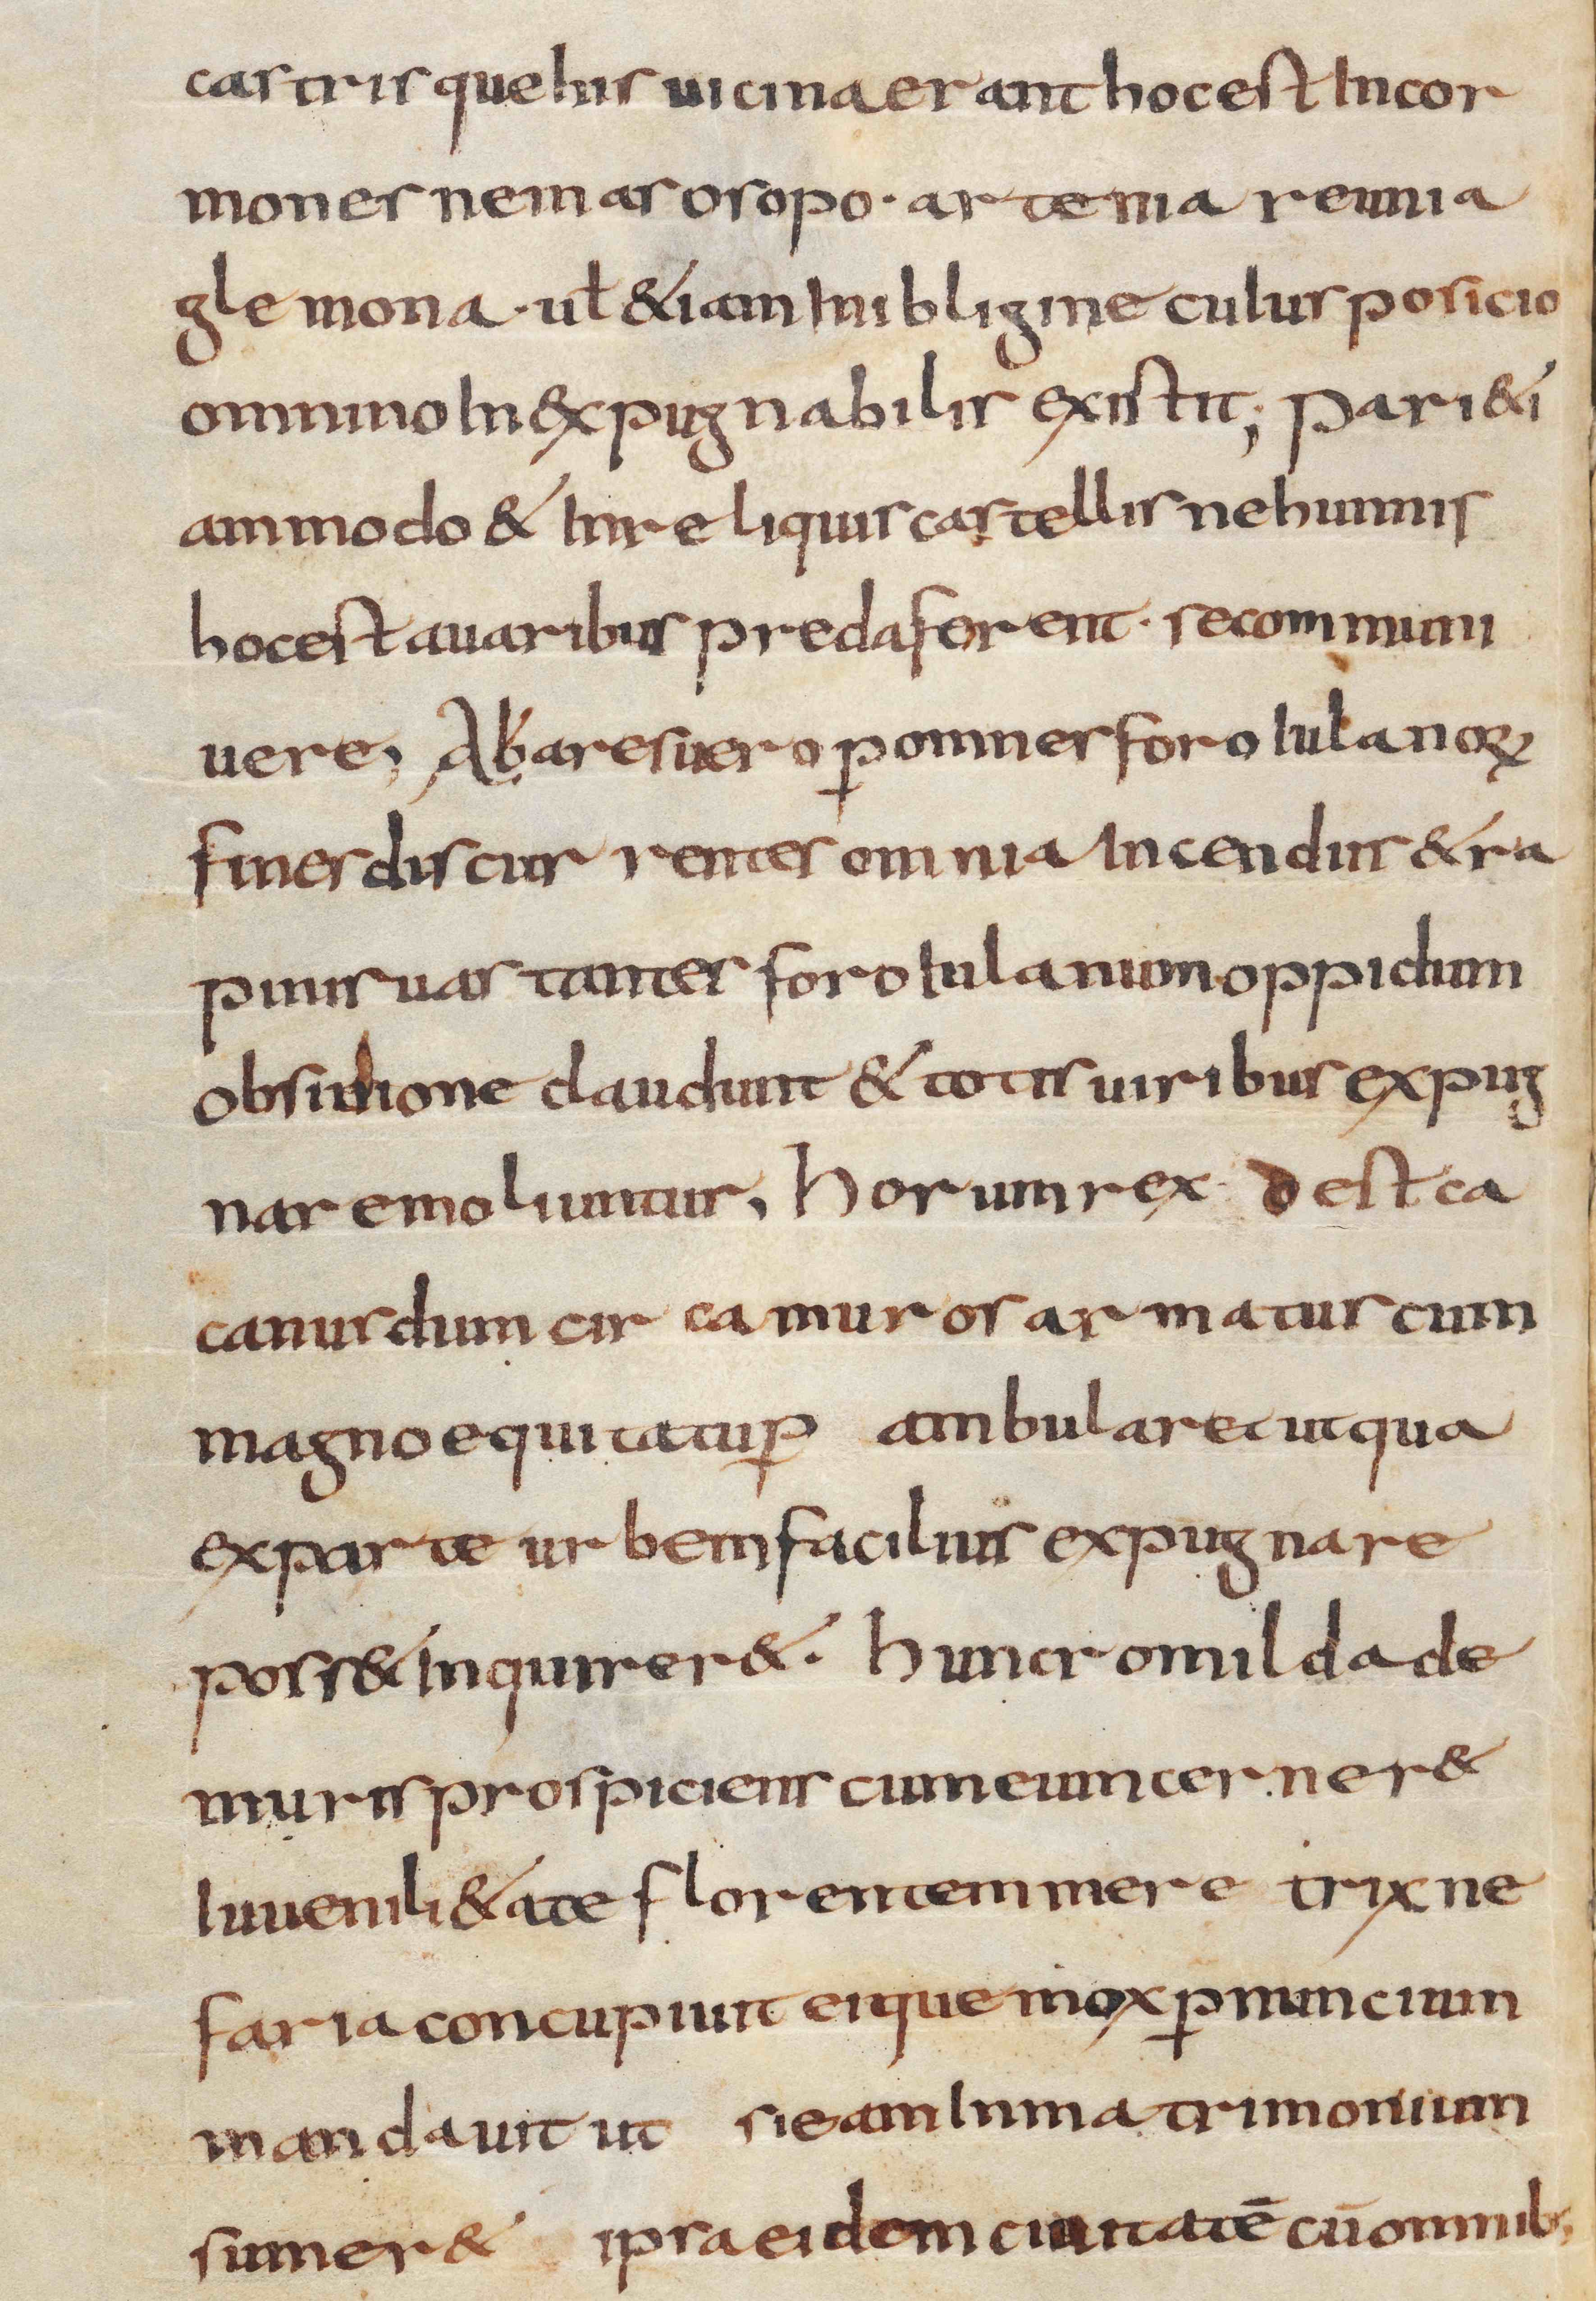 castris que his uicina erant hoc est In cor
mones nemas osopo · artenia reunia
glemona · ul & iam In ibligine cuius posicio
omnino In expugnabilis existit; Pari & i
am modo & In reliquis castellis ne hunnis
hoc est auaribus preda forent · se communi
uere, Abares uero p omnes foroIulanoꝝ
fines discurrentes omnia Incendiis & ra
pinis uastantes foroIulanum oppidum
obsidione claudunt & totis uiribus expug
nare moliuntur, horum rex dest ca
canus dum circa muros armatus cum
magno equitatu p ambularet ut qua
ex parte urbem facilius expugnare
poss& Inquirer& · hunc romilda de
muris prospiciens cum eum cerner&
Iuuenili & ate florentem mere trix ne
faria concupiuit eique mox p nuncium
mandauit ut si eam In matrimonium
sumer& ipsa eidem ciuitatē cū omnib;